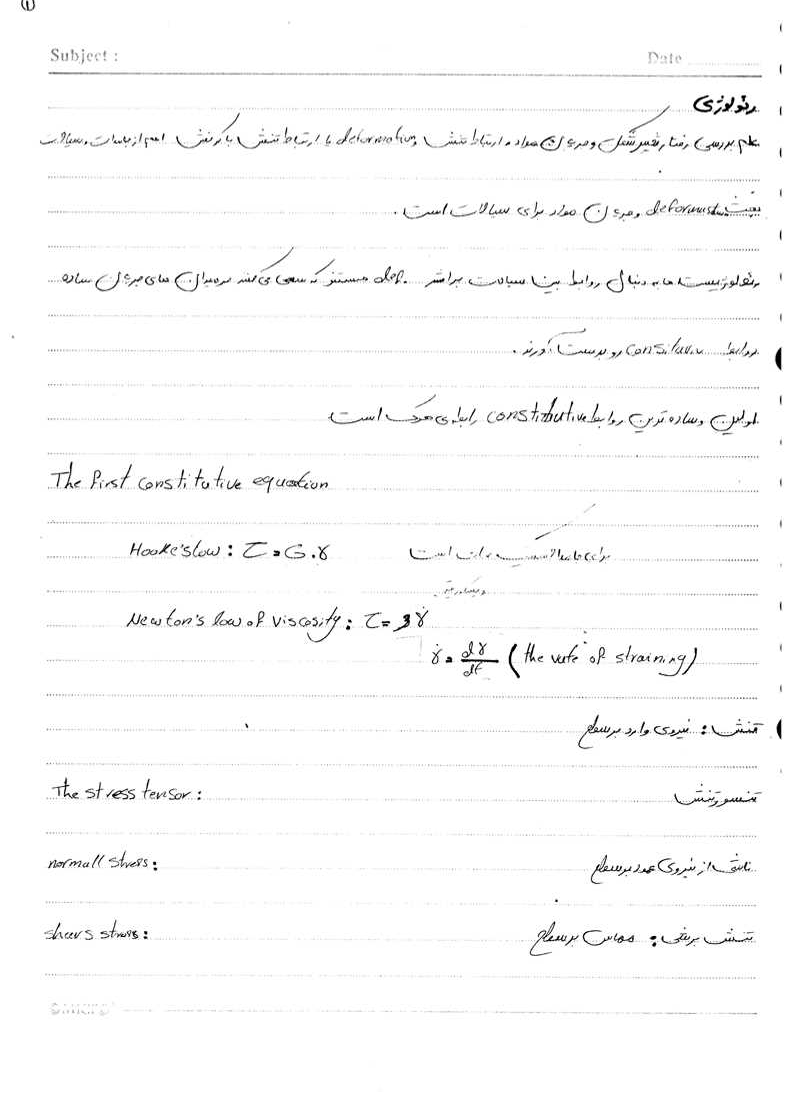 ①
Subject :
Date
رئولوژی
علم بررسی رفتار تغییر شکل و جریان مواد و ارتباط تنش و deformation یا ارتباط تنش با کرنش اعم از جامدات و سیالات
deformation و جریان مواد برای سیالات است.
رئولوژیست ها به دنبال روابط بین سیالات def. هستند که سعی می کنند میدان های جریان ساده
روابط constitutive رو بدست آورند.
اولین و ساده ترین روابط constitutive رابطه ی هوک است
The first constitutive equation
Hooke's low : τ = G.γ
است
Newton's low of viscosity : τ = 3γ̇
γ̇ = dγ/dt (the rate of straining)
تنش : نیروی وارد بر سطح
The stress tensor :
تنسور تنش
normall stress :
ناشی از نیروی عمود بر سطح
shears stress :
تنش برشی : مماس بر سطح